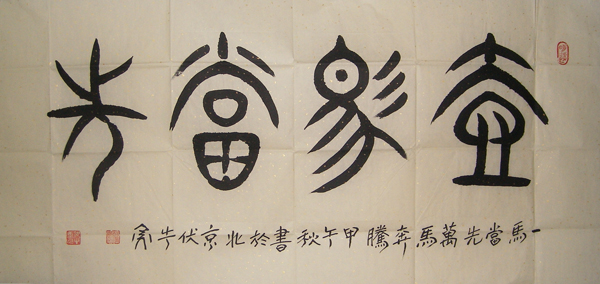 壹馬當先
一馬當先萬馬奔騰甲午秋書於北京伏牛